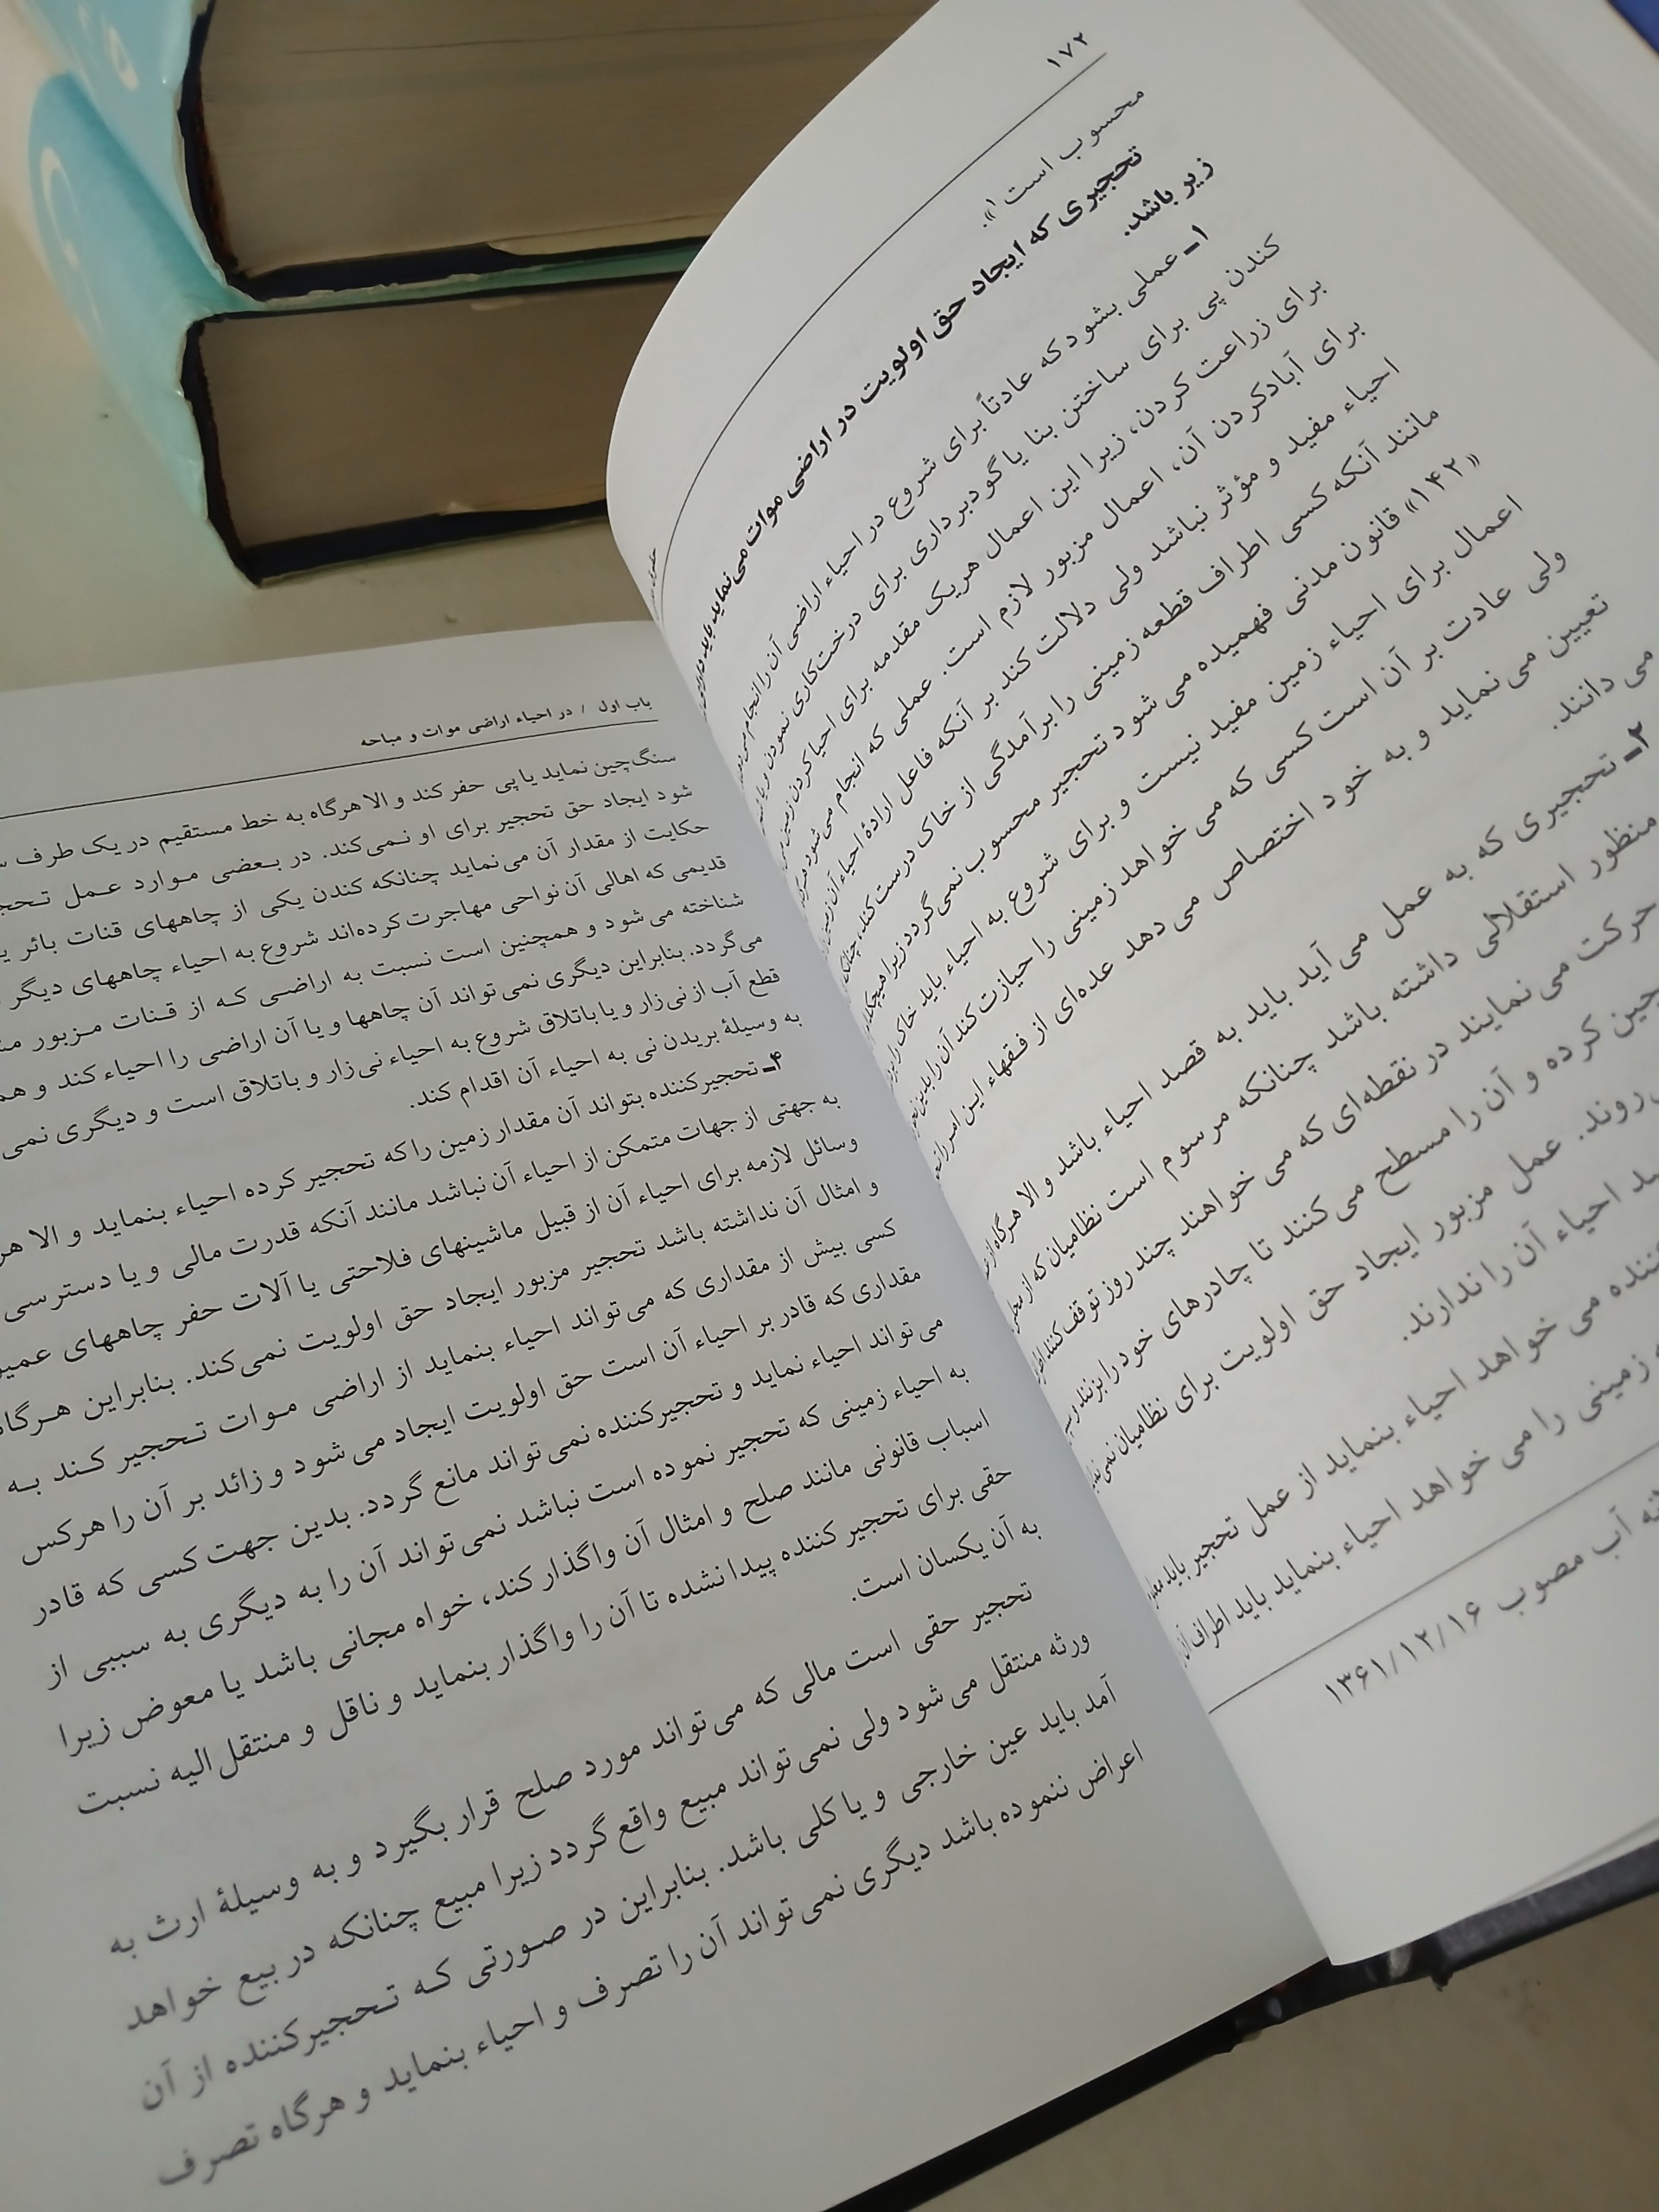 ۱۷۲
محسوب است۱».
تحجیری که ایجاد حق اولویت در اراضی موات می‌نماید باید
زیر باشد.
۱ـ عملی بشود که عادتاً برای شروع در احیاء اراضی آن را انجام
کندن پی برای ساختن بنا یا گودبرداری برای درخت‌کاری نمودن و یا
برای زراعت کردن، زیرا این اعمال هریک مقدمه برای احیا کردن زمین
برای آبادکردن آن، اعمال مزبور لازم است. عملی که انجام می‌شود
احیاء مفید و مؤثر نباشد ولی دلالت کند بر آنکه فاعل ارادۀ احیاء آن زمین
مانند آنکه کسی اطراف قطعه زمینی را برآمدگی از خاک درست کند،
«۱۴۲» قانون مدنی فهمیده می‌شود تحجیر محسوب نمی‌گردد زیرا
اعمال برای احیاء زمین مفید نیست و برای شروع به احیاء باید خاک را
ولی عادت بر آن است کسی که می‌خواهد زمینی را حیازت کند آن را بدین
تعیین می‌نماید و به خود اختصاص می‌دهد عده‌ای از فقهاء این امر را
می‌دانند.
۲ـ تحجیری که به عمل می‌آید باید به قصد احیاء باشد و الا هرگاه از
منظور استقلالی داشته باشد چنانکه مرسوم است نظامیان که از محلی
حرکت می‌نمایند در نقطه‌ای که می‌خواهند چند روز توقف کنند
چین کرده و آن را مسطح می‌کنند تا چادرهای خود را بزنند
روند. عمل مزبور ایجاد حق اولویت برای نظامیان نمی
احیاء آن را ندارند.
می‌خواهد احیاء بنماید از عمل تحجیر باید
زمینی را می‌خواهد احیاء بنماید باید اطراف
آب مصوب ۱۳۶۱/۱۲/۱۶
باب اول / در احیاء اراضی موات و مباحه
سنگ‌چین نماید یا پی حفر کند و الا هرگاه به خط مستقیم در یک طرف
شود ایجاد حق تحجیر برای او نمی‌کند. در بعضی موارد عمل
حکایت از مقدار آن می‌نماید چنانکه کندن یکی از چاههای قنات بائر
قدیمی که اهالی آن نواحی مهاجرت کرده‌اند شروع به احیاء چاههای دیگر
شناخته می‌شود و همچنین است نسبت به اراضی که از قنات مزبور
می‌گردد. بنابراین دیگری نمی‌تواند آن چاهها و یا آن اراضی را احیاء کند و
قطع آب از نی‌زار و یا باتلاق شروع به احیاء نی‌زار و باتلاق است و دیگری نمی
به وسیلۀ بریدن نی به احیاء آن اقدام کند.
۴ـ تحجیرکننده بتواند آن مقدار زمین را که تحجیر کرده احیاء بنماید و الا
به جهتی از جهات متمکن از احیاء آن نباشد مانند آنکه قدرت مالی و یا دسترسی
وسائل لازمه برای احیاء آن از قبیل ماشینهای فلاحتی یا آلات حفر چاههای
و امثال آن نداشته باشد تحجیر مزبور ایجاد حق اولویت نمی‌کند. بنابراین هرگاه
کسی بیش از مقداری که می‌تواند احیاء بنماید از اراضی موات تحجیر کند به
مقداری که قادر بر احیاء آن است حق اولویت ایجاد می‌شود و زائد بر آن را هرکس
می‌تواند احیاء نماید و تحجیرکننده نمی‌تواند مانع گردد. بدین جهت کسی که قادر
به احیاء زمینی که تحجیر نموده است نباشد نمی‌تواند آن را به دیگری به سببی از
اسباب قانونی مانند صلح و امثال آن واگذار کند، خواه مجانی باشد یا معوض زیرا
حقی برای تحجیر کننده پیدا نشده تا آن را واگذار بنماید و ناقل و منتقل‌الیه نسبت
به آن یکسان است.
تحجیر حقی است مالی که می‌تواند مورد صلح قرار بگیرد و به وسیلۀ ارث به
ورثه منتقل می‌شود ولی نمی‌تواند مبیع واقع گردد زیرا مبیع چنانکه در بیع خواهد
آمد باید عین خارجی و یا کلی باشد. بنابراین در صورتی که تحجیرکننده از آن
اعراض ننموده باشد دیگری نمی‌تواند آن را تصرف و احیاء بنماید و هرگاه تصرف